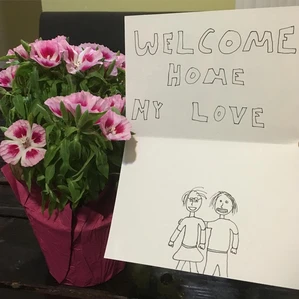 WELCOME
HOME
MY LOVE